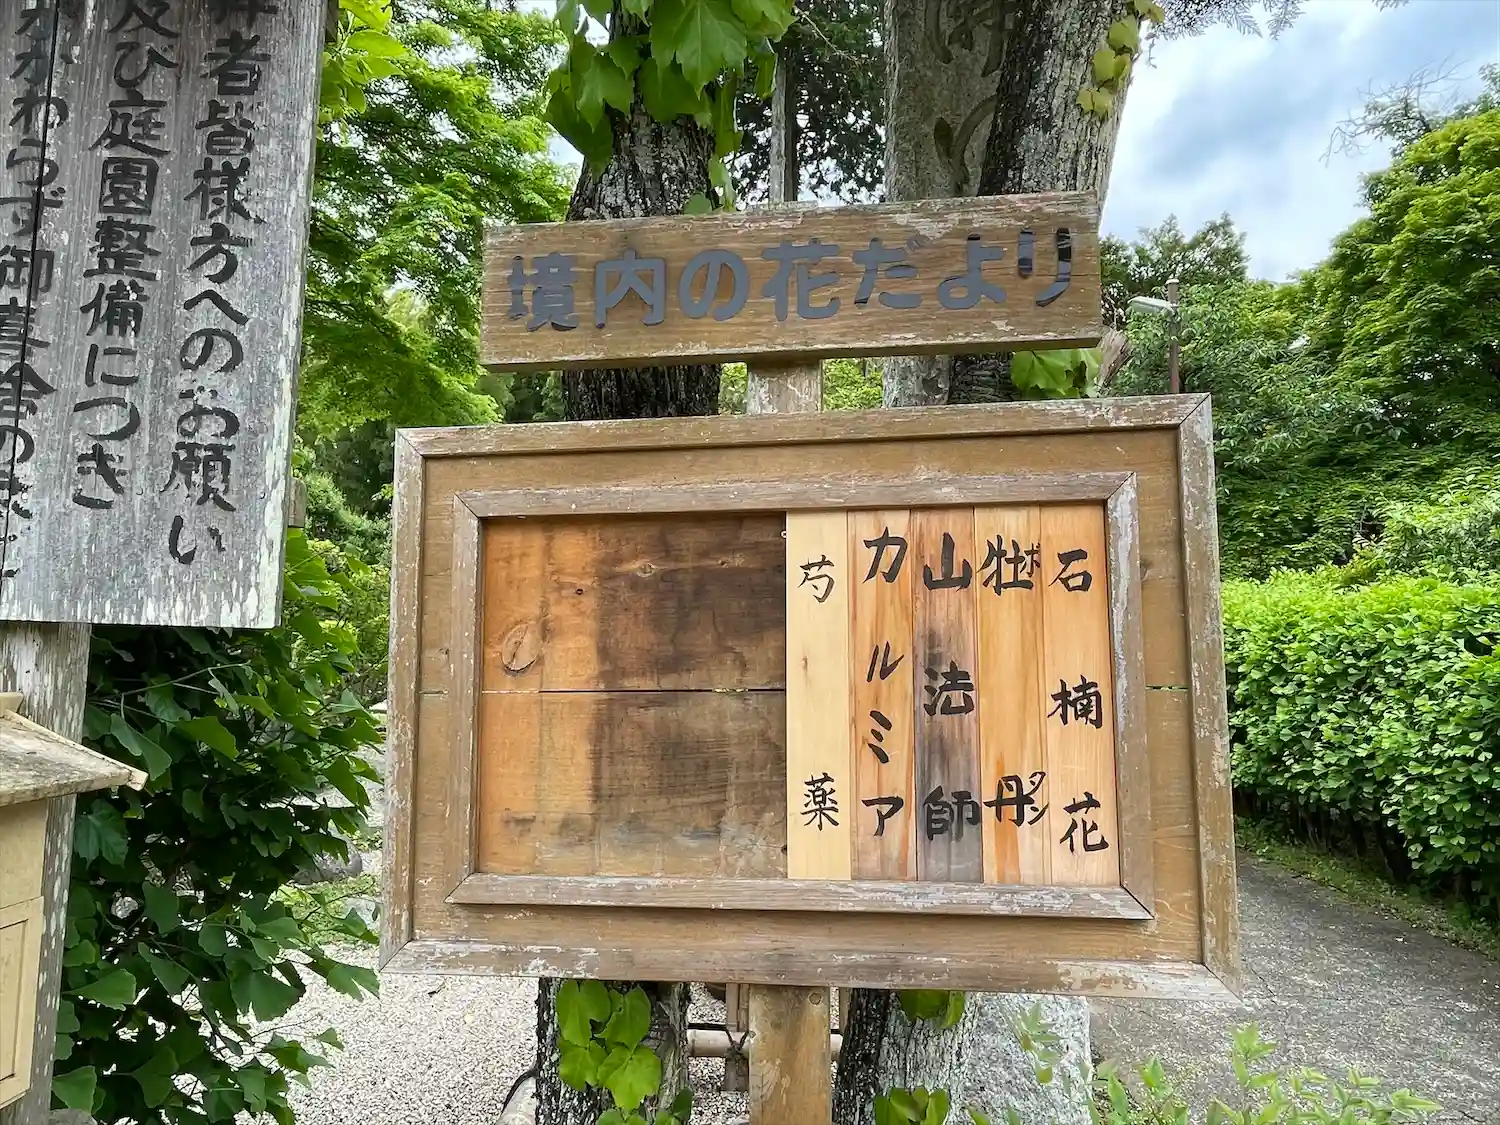 境内の花だより
石楠花
牡丹
ボ
タン
山法師
カルミア
芍薬
者皆様方へのお願い
及び庭園整備につき
かかわらず御喜舎の